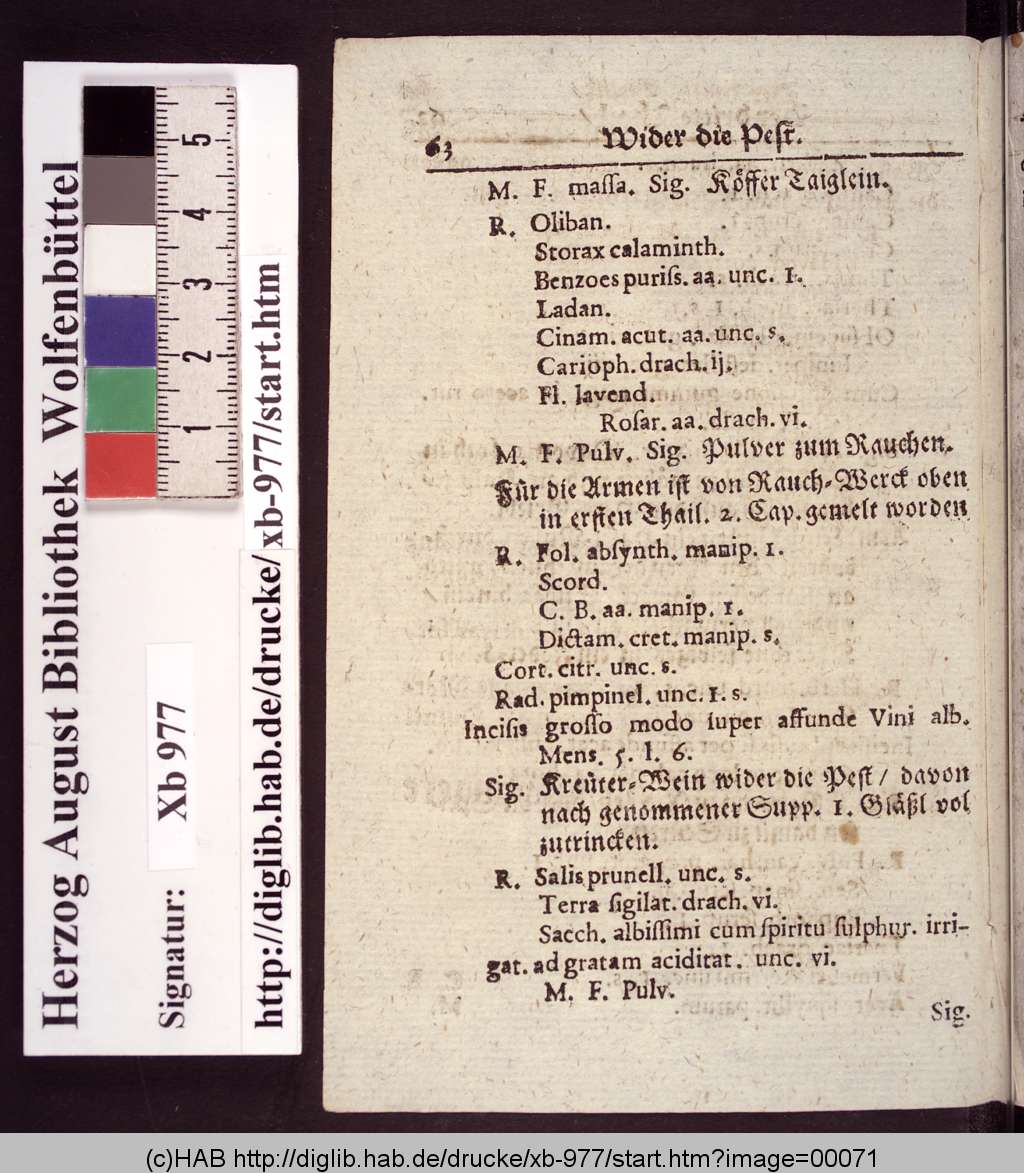 63 Wider die Pest.
M. F. massa. Sig. Köffer Taiglein.
R. Oliban.
Storax calaminth.
Benzoes puriss. aa. unc. 1.
Ladan.
Cinam. acut. aa. unc. s.
Carioph. drach. ij.
Fl. lavend.
Rosar. aa. drach. vi.
M. F. Pulv. Sig. Pulver zum Rauchen.
Für die Armen ist von Rauch-Werck oben
in ersten Thail. 2. Cap. gemelt worden
R. Fol. absynth. manip. 1.
Scord.
C. B. aa. manip. 1.
Dictam. cret. manip. s.
Cort. citr. unc. s.
Rad. pimpinel. unc. 1. s.
Incisis grosso modo super affunde Vini alb.
Mens. 5. l. 6.
Sig. Kreüter-Wein wider die Pest / davon
nach genommener Supp. 1. Gläßl vol
zutrincken.
R. Salis prunell. unc. s.
Terra sigilat. drach. vi.
Sacch. albissimi cum spiritu sulphur. irri-
gat. ad gratam aciditat. unc. vi.
M. F. Pulv.
Sig.
Herzog August Bibliothek Wolfenbüttel
Signatur: Xb 977
http://diglib.hab.de/drucke/xb-977/start.htm
5
4
3
2
1
(c)HAB http://diglib.hab.de/drucke/xb-977/start.htm?image=00071